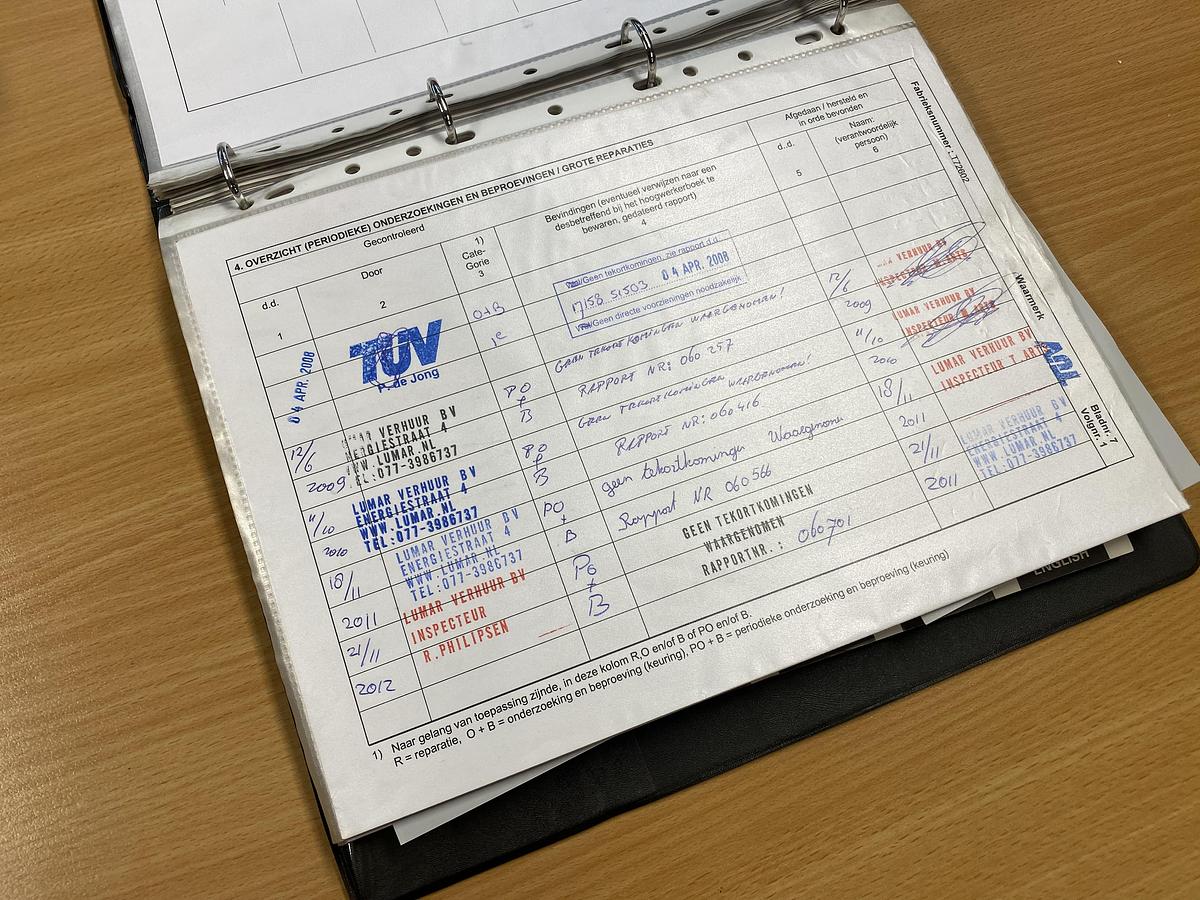 4. OVERZICHT (PERIODIEKE) ONDERZOEKINGEN EN BEPROEVINGEN / GROTE REPARATIES
Fabrieksnummer : 172602
Gecontroleerd
Afgedaan / hersteld en
in orde bevonden
d.d.
1
Door
2
1)
Cate-
Gorie
3
Bevindingen (eventueel verwijzen naar een
desbetreffend bij het hoogwerkerboek te
bewaren, gedateerd rapport)
4
d.d.
5
Naam:
(verantwoordelijk
persoon)
6
Waarmerk
04 APR. 2008
TÜV
P. de Jong
O+B
1e
/Geen tekortkomingen, zie rapport d.d.
17158 51503 04 APR. 2008
/Geen directe voorzieningen noodzakelijk
12/6
2009
LUMAR VERHUUR BV
ENERGIESTRAAT 4
WWW.LUMAR.NL
TEL:077-3986737
PO
+
B
GEEN TEKORTKOMINGEN WAARGENOMEN!
RAPPORT NR: 060257
12/6
2009
VERHUUR BV
INSPECTEUR
11/10
2010
LUMAR VERHUUR BV
ENERGIESTRAAT 4
WWW.LUMAR.NL
TEL:077-3986737
PO
+
B
GEEN TEKORTKOMINGEN WAARGENOMEN!
RAPPORT NR: 060416
11/10
2010
LUMAR VERHUUR BV
INSPECTEUR
18/11
2011
LUMAR VERHUUR BV
ENERGIESTRAAT 4
WWW.LUMAR.NL
TEL:077-3986737
PO
+
B
geen tekortkomingen Waargenomen
Rapport NR 060566
18/11
2011
LUMAR VERHUUR BV
INSPECTEUR T ARTS
21/11
2012
LUMAR VERHUUR BV
INSPECTEUR
R.PHILIPSEN
PO
+
B
GEEN TEKORTKOMINGEN
WAARGENOMEN
RAPPORTNR.: 060701
21/11
2011
LUMAR VERHUUR BV
ENERGIESTRAAT 4
WWW.LUMAR.NL
TEL:077-3986737
Bladnr. 7
Volgnr.
1) Naar gelang van toepassing zijnde, in deze kolom R,O en/of B of PO en/of B.
R = reparatie, O + B = onderzoeking en beproeving (keuring), PO + B = periodieke onderzoeking en beproeving (keuring)
ENGLISH